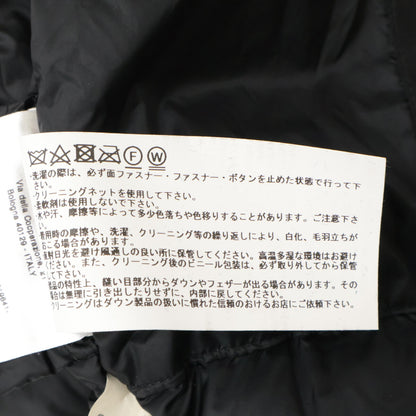 F W
洗濯の際は、必ず面ファスナー・ファスナー・ボタンを止めた状態で行って下
さい。
クリーニングネットを使用して下さい。
軟剤は使用しないで下さい。
水や汗、摩擦等によって多少色落ちや色移りすることがあります。ご注意下さ
い。
着用時の摩擦や、洗濯、クリーニング等の繰り返しにより、白化、毛羽立ちが
起こる場合があります。
直射日光を避け風通しの良い所に保管してください。高温多湿な環境はお避け
ください。また、クリーニング後のビニール包装は、必ず取り外してから保管
してください。
製品の特性上、縫い目部分からダウンやフェザーが出る場合があります。その
場合は無理に引き出したりせずに、内部に戻してください。
クリーニングはダウン製品の扱いに慣れた信頼のおけるお店にご依頼下さい。
Via della Cooperazione
Bologna 40129 - ITALY